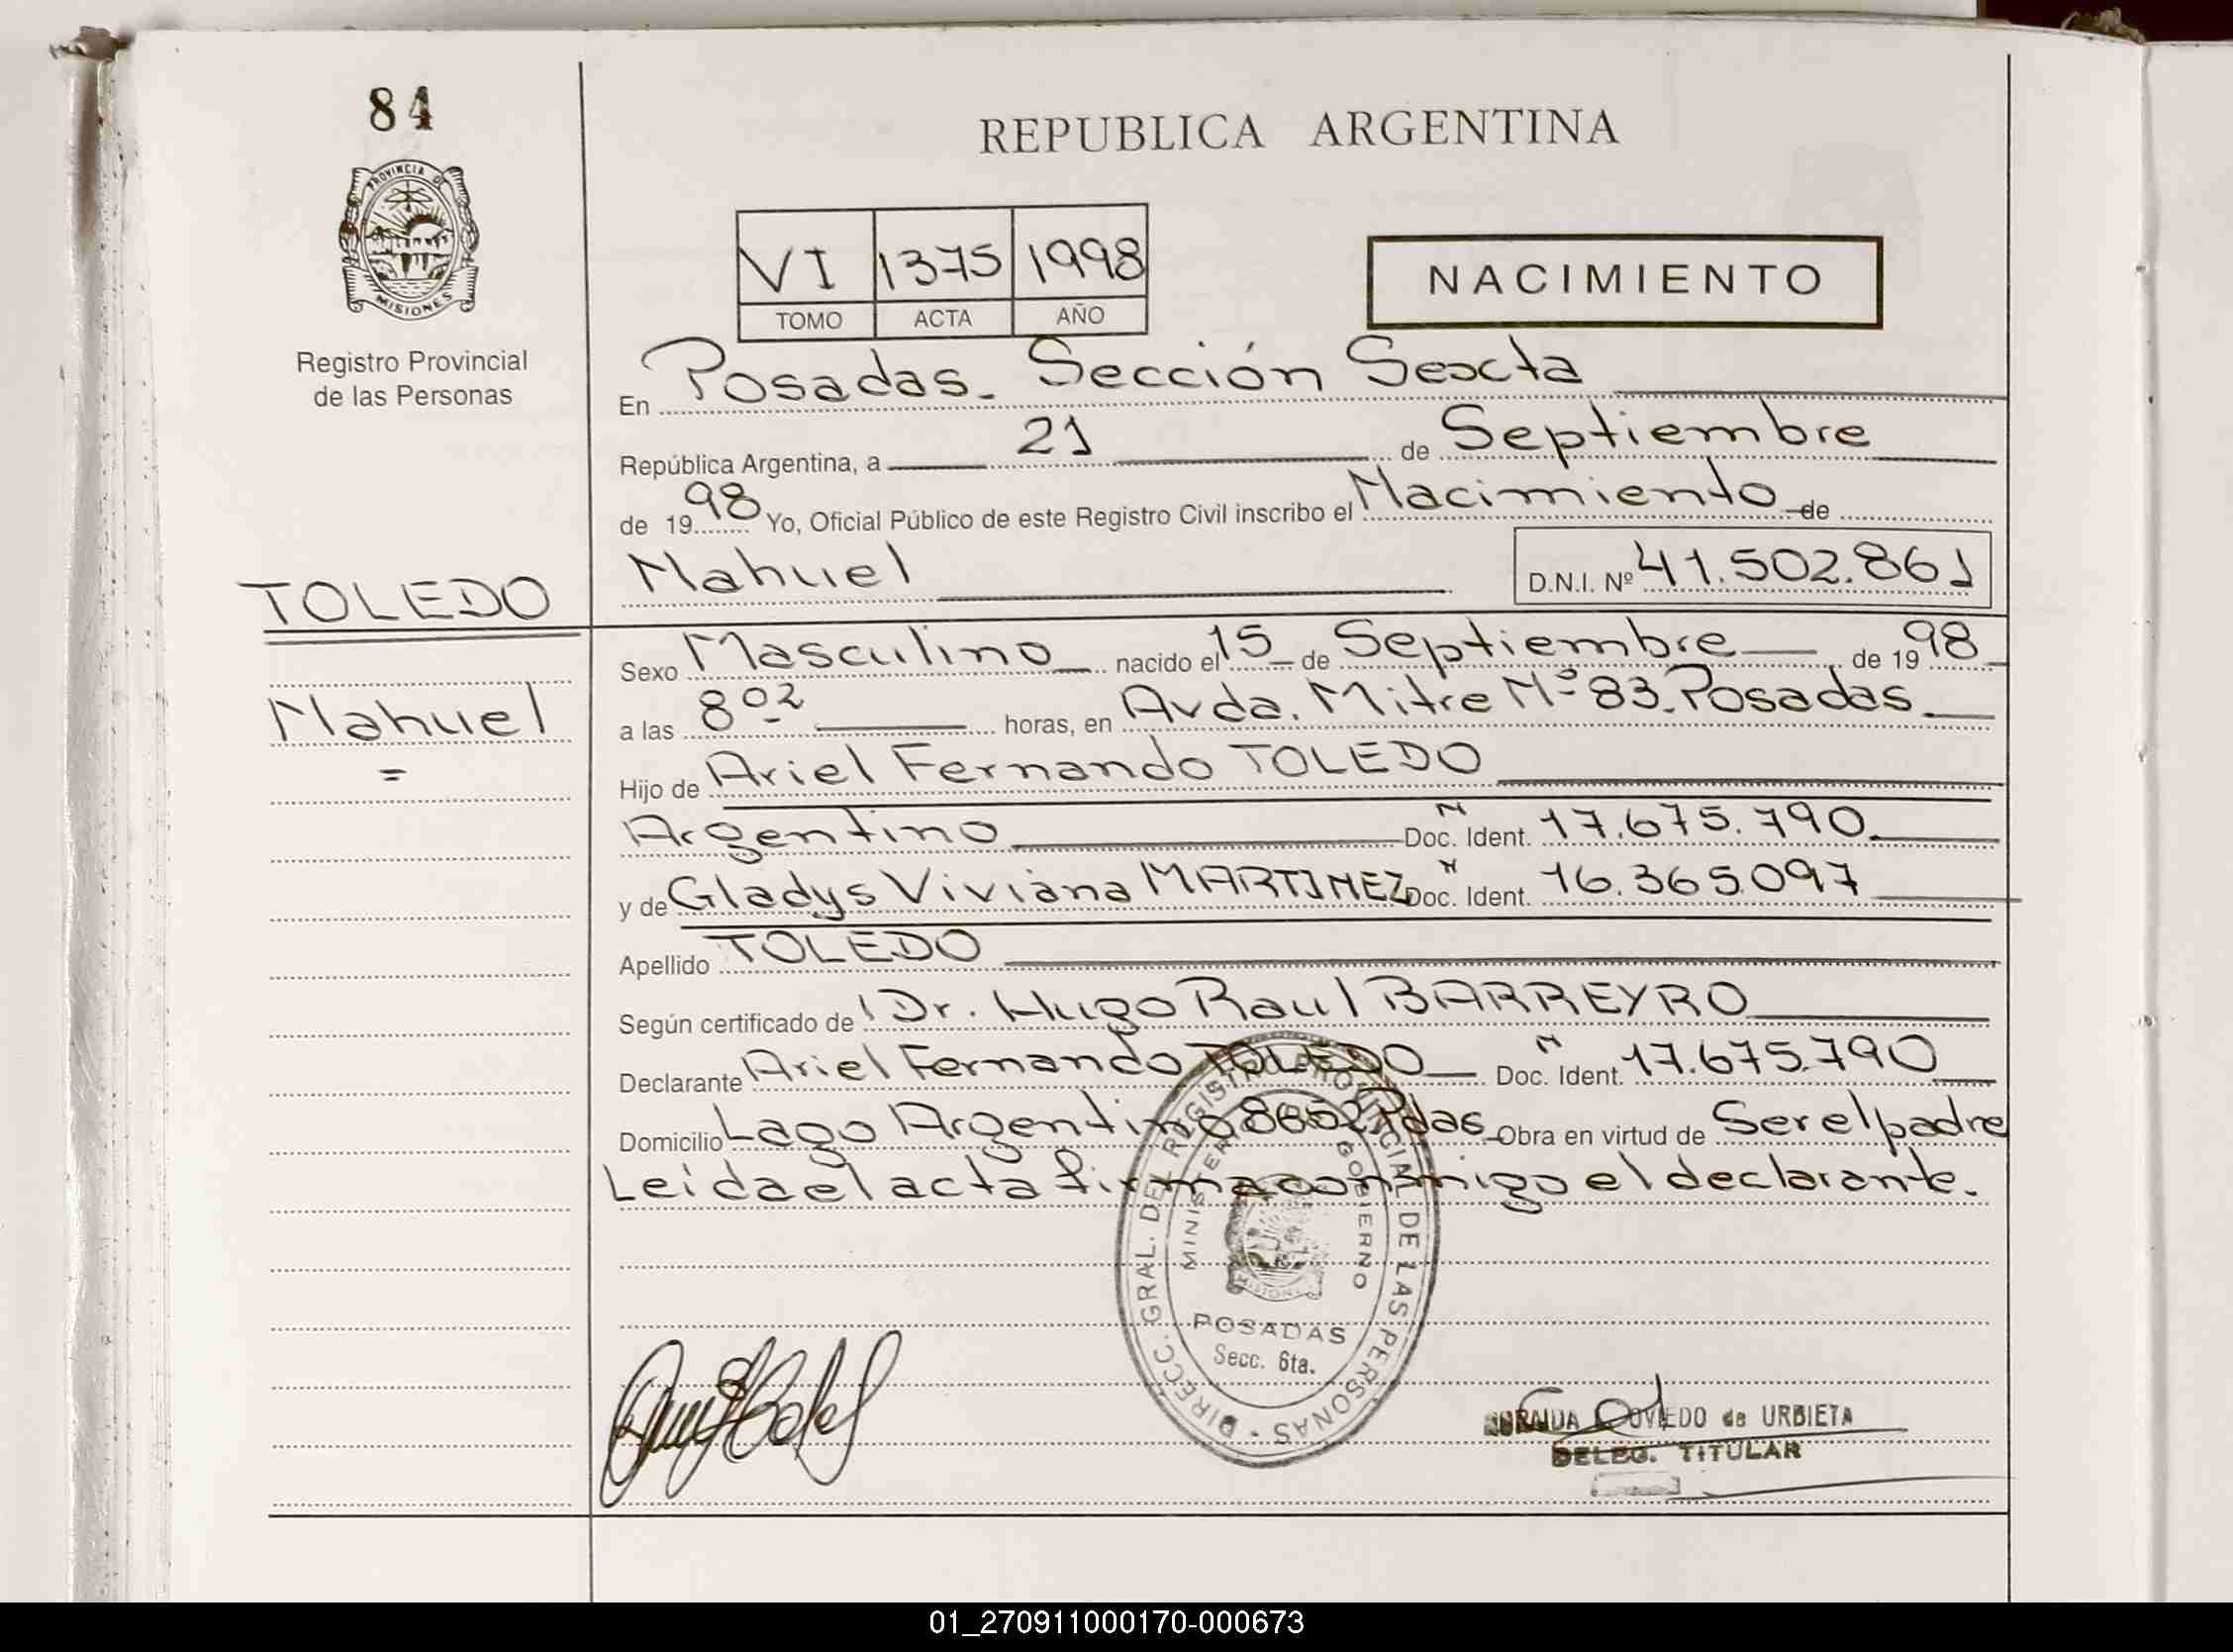 84
REPUBLICA ARGENTINA
PROVINCIA DE
MISIONES
Registro Provincial
de las Personas
VI 1375 1998
TOMO ACTA AÑO
NACIMIENTO
En Posadas. Sección Sexta
República Argentina, a 21 de Septiembre
de 1998 Yo, Oficial Público de este Registro Civil inscribo el Nacimiento de
Nahuel D.N.I. Nº 41.502.861
TOLEDO
Nahuel
=
Sexo Masculino nacido el 15 de Septiembre de 1998
a las 8 02 horas, en Avda. Mitre Nº 83. Posadas.
Hijo de Ariel Fernando TOLEDO
Argentino Doc. N Ident. 17.675.790.
y de Gladys Viviana MARTINEZ Doc. N Ident. 16.365.097
Apellido TOLEDO
Según certificado de Dr. Hugo Raul BARREYRO
Declarante Ariel Fernando TOLEDO Doc. N Ident. 17.675.790
Domicilio Lago Argentino 8652 Pdas. Obra en virtud de Ser el padre
Leida el acta firma conmigo el declarante.
DIRECC. GRAL. DEL REGISTRO PROVINCIAL DE LAS PERSONAS
MINISTERIO GOBIERNO
MISIONES
POSADAS
Secc. 6ta.
OVIEDO de URBIETA
DELEG. TITULAR
01_270911000170-000673